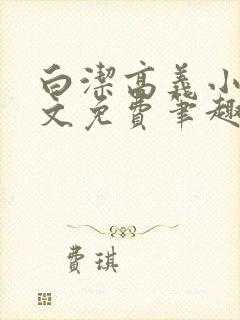 白潔高義小
文免費笔趣
費琪